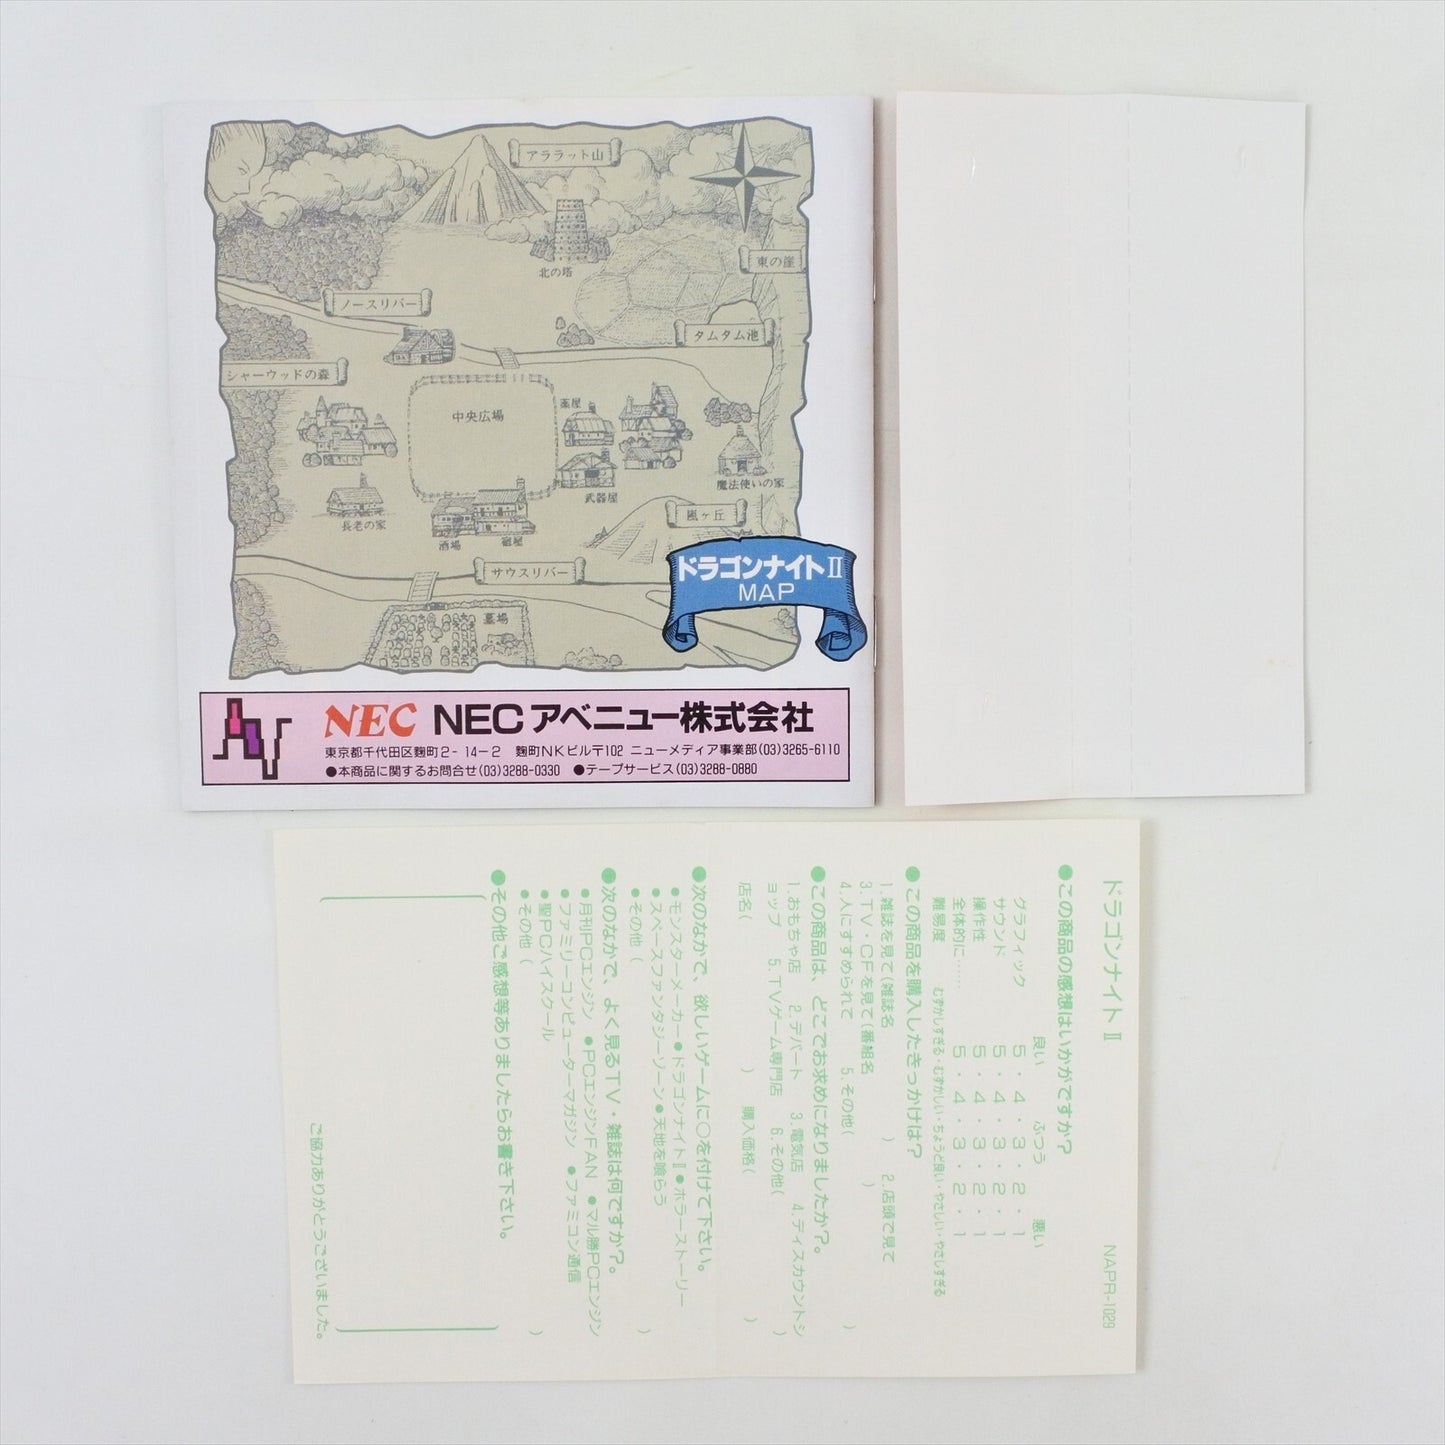 アララット山
北の塔
東の崖
ノースリバー
タムタム池
シャーウッドの森
中央広場
薬屋
武器屋
魔法使いの家
長老の家
酒場
宿屋
嵐ヶ丘
サウスリバー
墓場
ドラゴンナイトⅡ
MAP
NEC NECアベニュー株式会社
東京都千代田区麹町2-14-2 麹町NKビル〒102 ニューメディア事業部(03)3265-6110
●本商品に関するお問合せ(03)3288-0330 ●テープサービス(03)3288-0880
ドラゴンナイトⅡ NAPR-1029
●この商品の感想はいかがですか?
良い ふつう 悪い
グラフィック 5・4・3・2・1
サウンド 5・4・3・2・1
操作性 5・4・3・2・1
全体的に…… 5・4・3・2・1
難易度 むずかしすぎる・むずかしい・ちょうど良い・やさしい・やさしすぎる
●この商品を購入したきっかけは?
1.雑誌を見て(雑誌名 ) 2.店頭で見て
3.TV・CFを見て(番組名 )
4.人にすすめられて 5.その他( )
●この商品は、どこでお求めになりましたか?。
1.おもちゃ店 2.デパート 3.電気店 4.ディスカウントシ
ョップ 5.TVゲーム専門店 6.その他( )
店名( ) 購入価格( )
●次のなかで、欲しいゲームに○を付けて下さい。
●モンスターメーカー ●ドラゴンナイトⅡ ●ホラーストーリー
●スペースファンタジーゾーン ●天地を喰らう
●その他( )
●次のなかで、よく見るTV・雑誌は何ですか?。
●月刊PCエンジン ●PCエンジンFAN ●マル勝PCエンジン
●ファミリーコンピューターマガジン ●ファミコン通信
●聖PCハイスクール
●その他( )
●その他ご感想等ありましたらお書き下さい。
ご協力ありがとうございました。